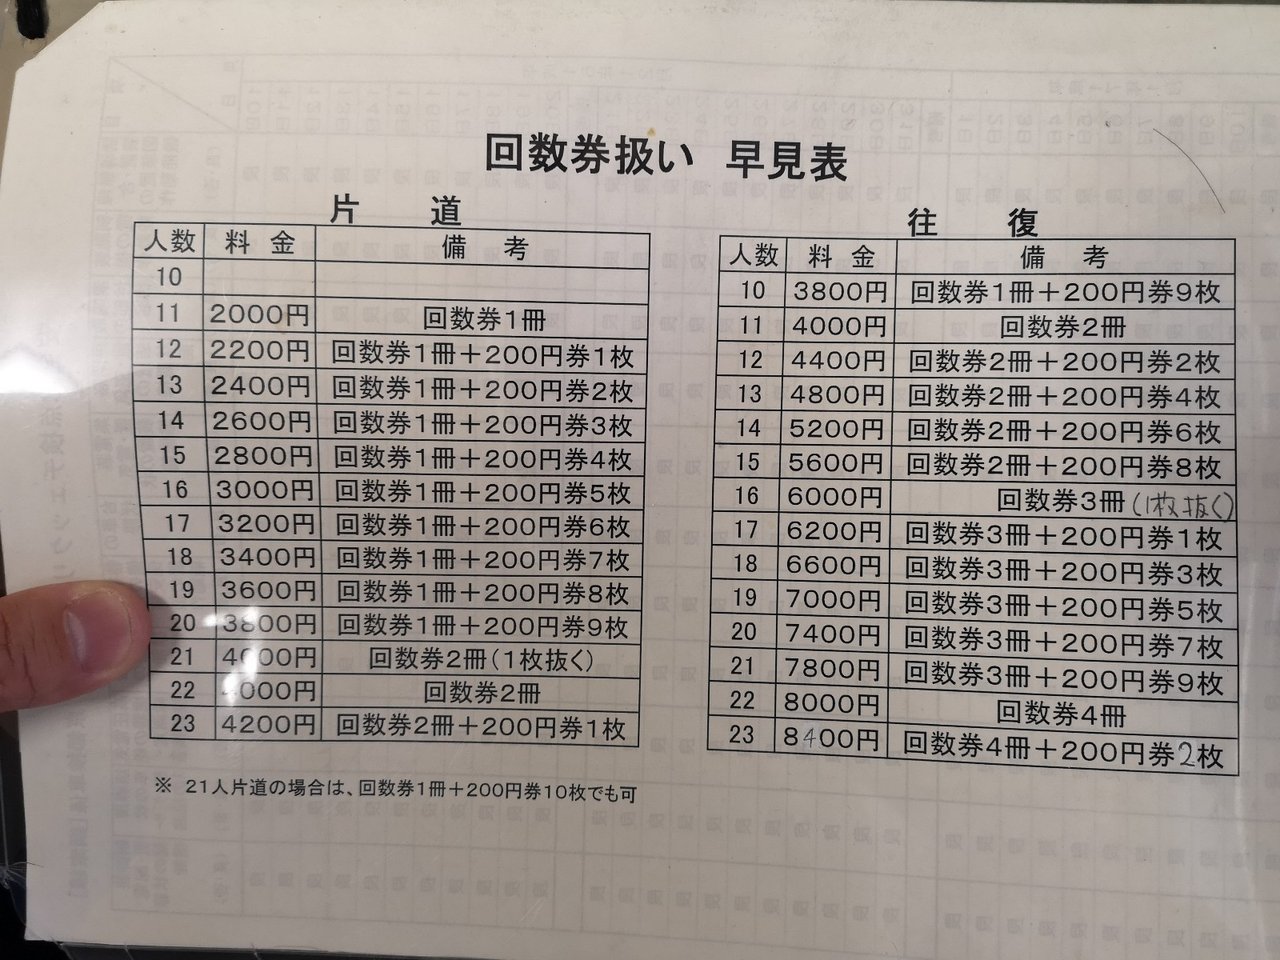 回数券扱い 早見表
片 道
人数 料 金 備 考
10
11 2000円 回数券1冊
12 2200円 回数券1冊＋200円券1枚
13 2400円 回数券1冊＋200円券2枚
14 2600円 回数券1冊＋200円券3枚
15 2800円 回数券1冊＋200円券4枚
16 3000円 回数券1冊＋200円券5枚
17 3200円 回数券1冊＋200円券6枚
18 3400円 回数券1冊＋200円券7枚
19 3600円 回数券1冊＋200円券8枚
20 3800円 回数券1冊＋200円券9枚
21 4000円 回数券2冊(1枚抜く)
22 4000円 回数券2冊
23 4200円 回数券2冊＋200円券1枚
※ 21人片道の場合は、回数券1冊＋200円券10枚でも可
往 復
人数 料 金 備 考
10 3800円 回数券1冊＋200円券9枚
11 4000円 回数券2冊
12 4400円 回数券2冊＋200円券2枚
13 4800円 回数券2冊＋200円券4枚
14 5200円 回数券2冊＋200円券6枚
15 5600円 回数券2冊＋200円券8枚
16 6000円 回数券3冊(1枚抜く)
17 6200円 回数券3冊＋200円券1枚
18 6600円 回数券3冊＋200円券3枚
19 7000円 回数券3冊＋200円券5枚
20 7400円 回数券3冊＋200円券7枚
21 7800円 回数券3冊＋200円券9枚
22 8000円 回数券4冊
23 8400円 回数券4冊＋200円券2枚